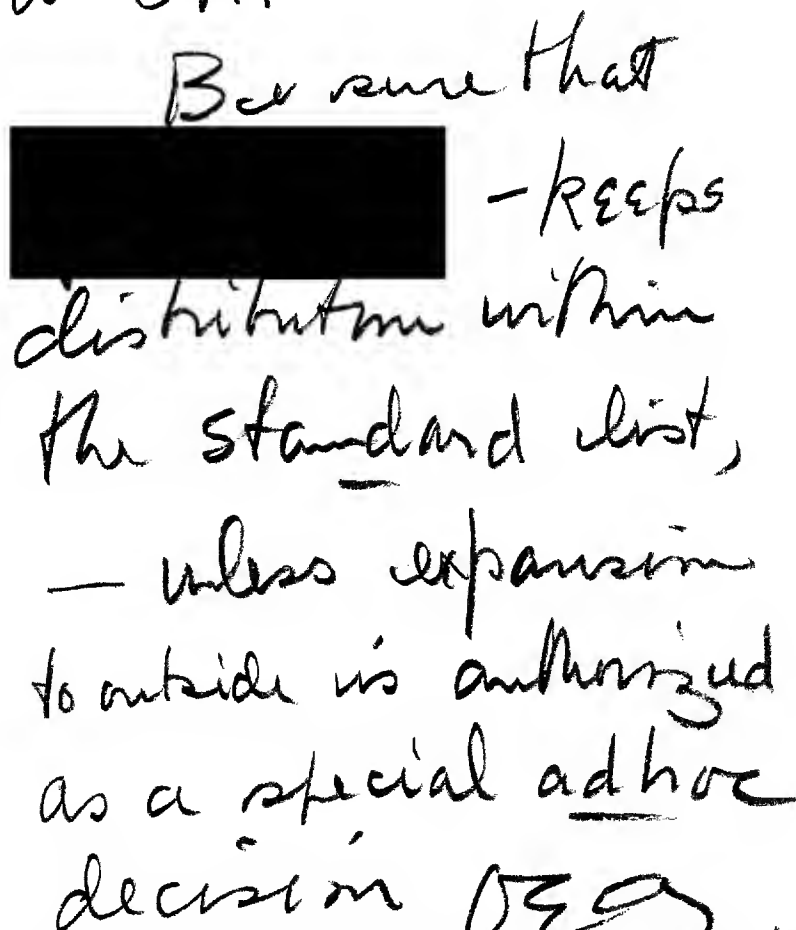 Be sure that
- keeps
distribution within
the standard list,
— unless expansion
to outside is authorized
as a special ad hoc
decision